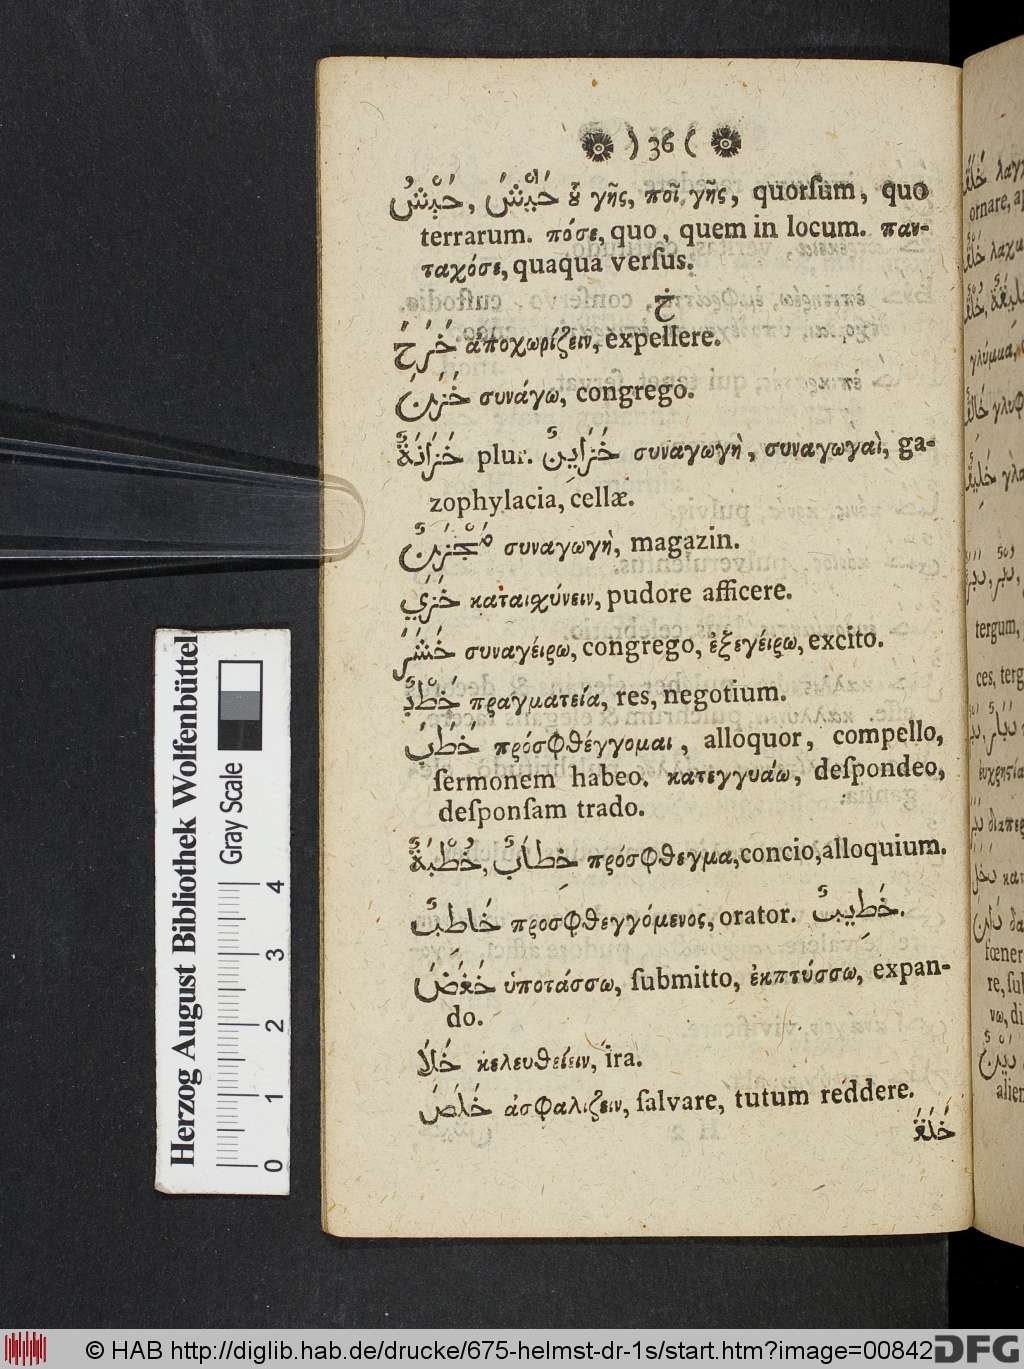 ) 36 (
حَيْثُ, حَيْثَ ȣ͂ γῆς, ποῖ γῆς, quorſum, quo
terrarum. πόσε, quo, quem in locum. παν-
ταχόσε, quaqua verſus.
خ
خَرَجَ ἀποχωρίζειν, expellere.
خَزَنَ συνάγω, congrego.
خَزَانَةٌ plur. خَزَايِنٌ συναγωγὴ, συναγωγαὶ, ga-
zophylacia, cellæ.
مَخْزَنٌ συναγωγὴ, magazin.
خَزَيَ καταιχύνειν, pudore afficere.
خَشَرَ συναγείρω, congrego, ἐξεγείρω, excito.
خَطْبٌ πραγματεία, res, negotium.
خَطَبَ πρόσφθέγγομαι, alloquor, compello,
ſermonem habeo. κατεγγυάω, deſpondeo,
deſponſam trado.
خُطْبَةٌ, خِطَابٌ πρόσφθεγμα, concio, alloquium.
خَاطِبٌ προσφθεγγόμενος, orator. خَطِيبٌ.
خَفَضَ ὑποτάσσω, ſubmitto, ἐκπτύσσω, expan-
do.
خَلَا κελευθείειν, ira.
خَلَصَ ἀσφαλιζειν, ſalvare, tutum reddere.
خَلَقَ
خَلَقَ
ornare,
γλύμμα,
tergum,
fœner
alien
Herzog August Bibliothek Wolfenbüttel
Gray Scale
0 1 2 3 4
© HAB http://diglib.hab.de/drucke/675-helmst-dr-1s/start.htm?image=00842
DFG